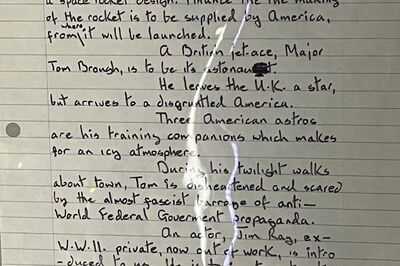 a space rocket design. Finance the making
of the rocket is to be supplied by America,
from where it will be launched.
A British jet-ace, Major
Tom Brough, is to be its astonaut.
He leaves the U.K. a star,
but arrives to a disgruntled America.
Three American astros
are his training companions which makes
for an icy atmosphere.
During his twilight walks
about town, Tom is disheartened and scared
by the almost fascist barrage of anti-
World Federal Goverment propaganda.
An actor, Jim Ray, ex-
W.W.II. private, now out of work, is intro
-duced to